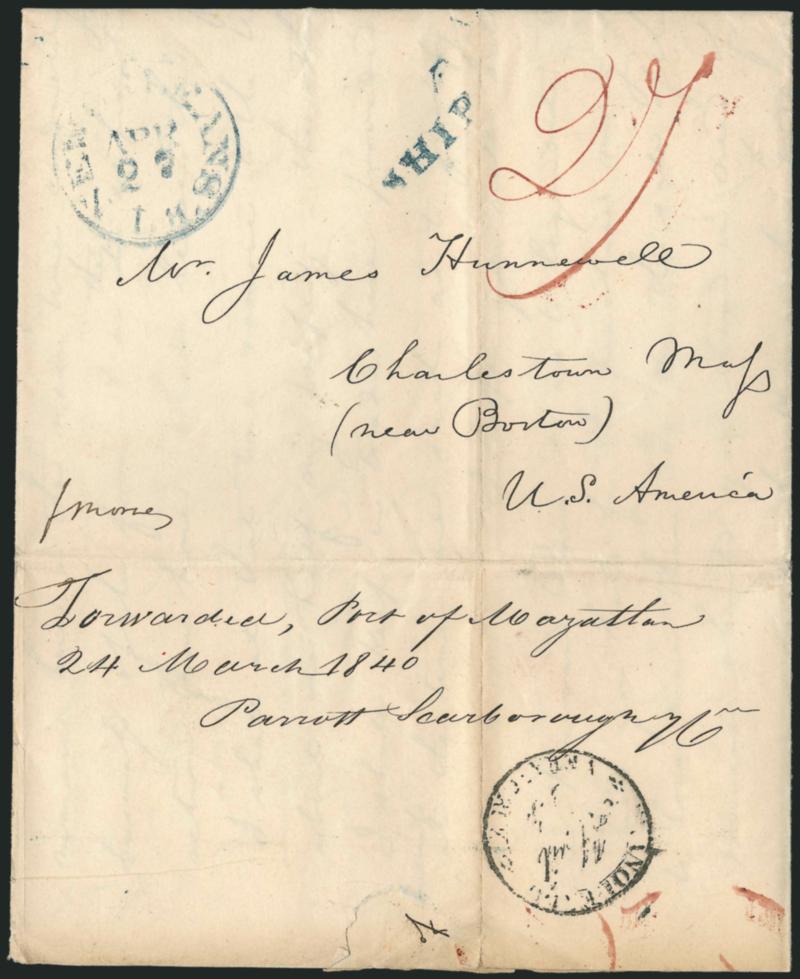 NEW ORLEANS
APR
27
SHIP
27
Mr. James Hunnewell
Charlestown Mass
(near Boston)
U.S. America
Forwarded, Port of Mazatlan
24 March 1840
Parrott Scarborough y Ca